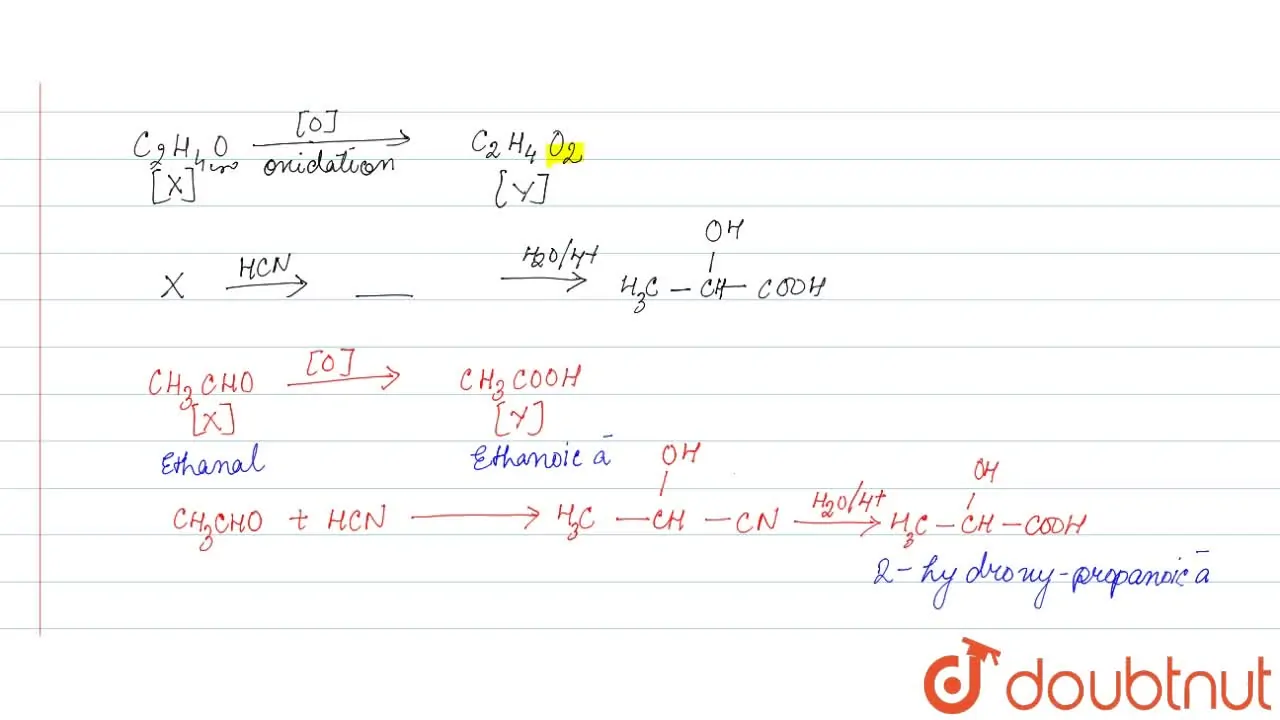 C2H4O [O] oxidation → C2H4O2
[X] [Y]
OH
X HCN → ___ H2O/H+ → H3C – CH – COOH
CH3CHO [O] → CH3COOH
[X] [Y]
Ethanal Ethanoic ā
OH OH
CH3CHO + HCN → H3C – CH – CN H2O/H+ → H3C – CH – COOH
2-hydroxy-propanoic ā
doubtnut